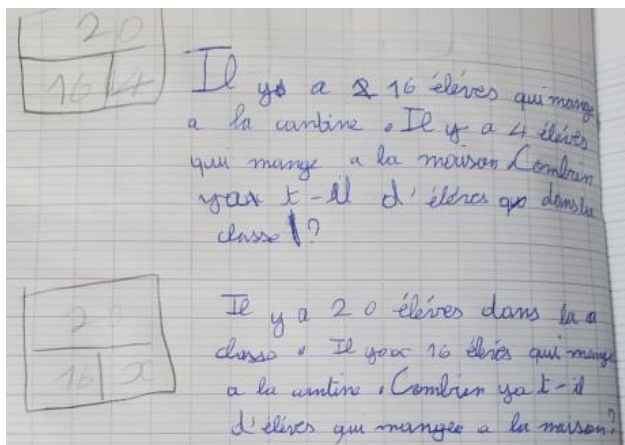 20
16 4
Il y a 16 élèves qui mange
a la cantine. Il y a 4 élèves
qui mange a la maison Combien
ya t-il d'élèves dans la
classe ?
20
16 x
Il y a 20 élèves dans la
classe. Il y a 16 élèves qui mange
a la cantine. Combien ya t-il
d'élèves qui mange a la maison?